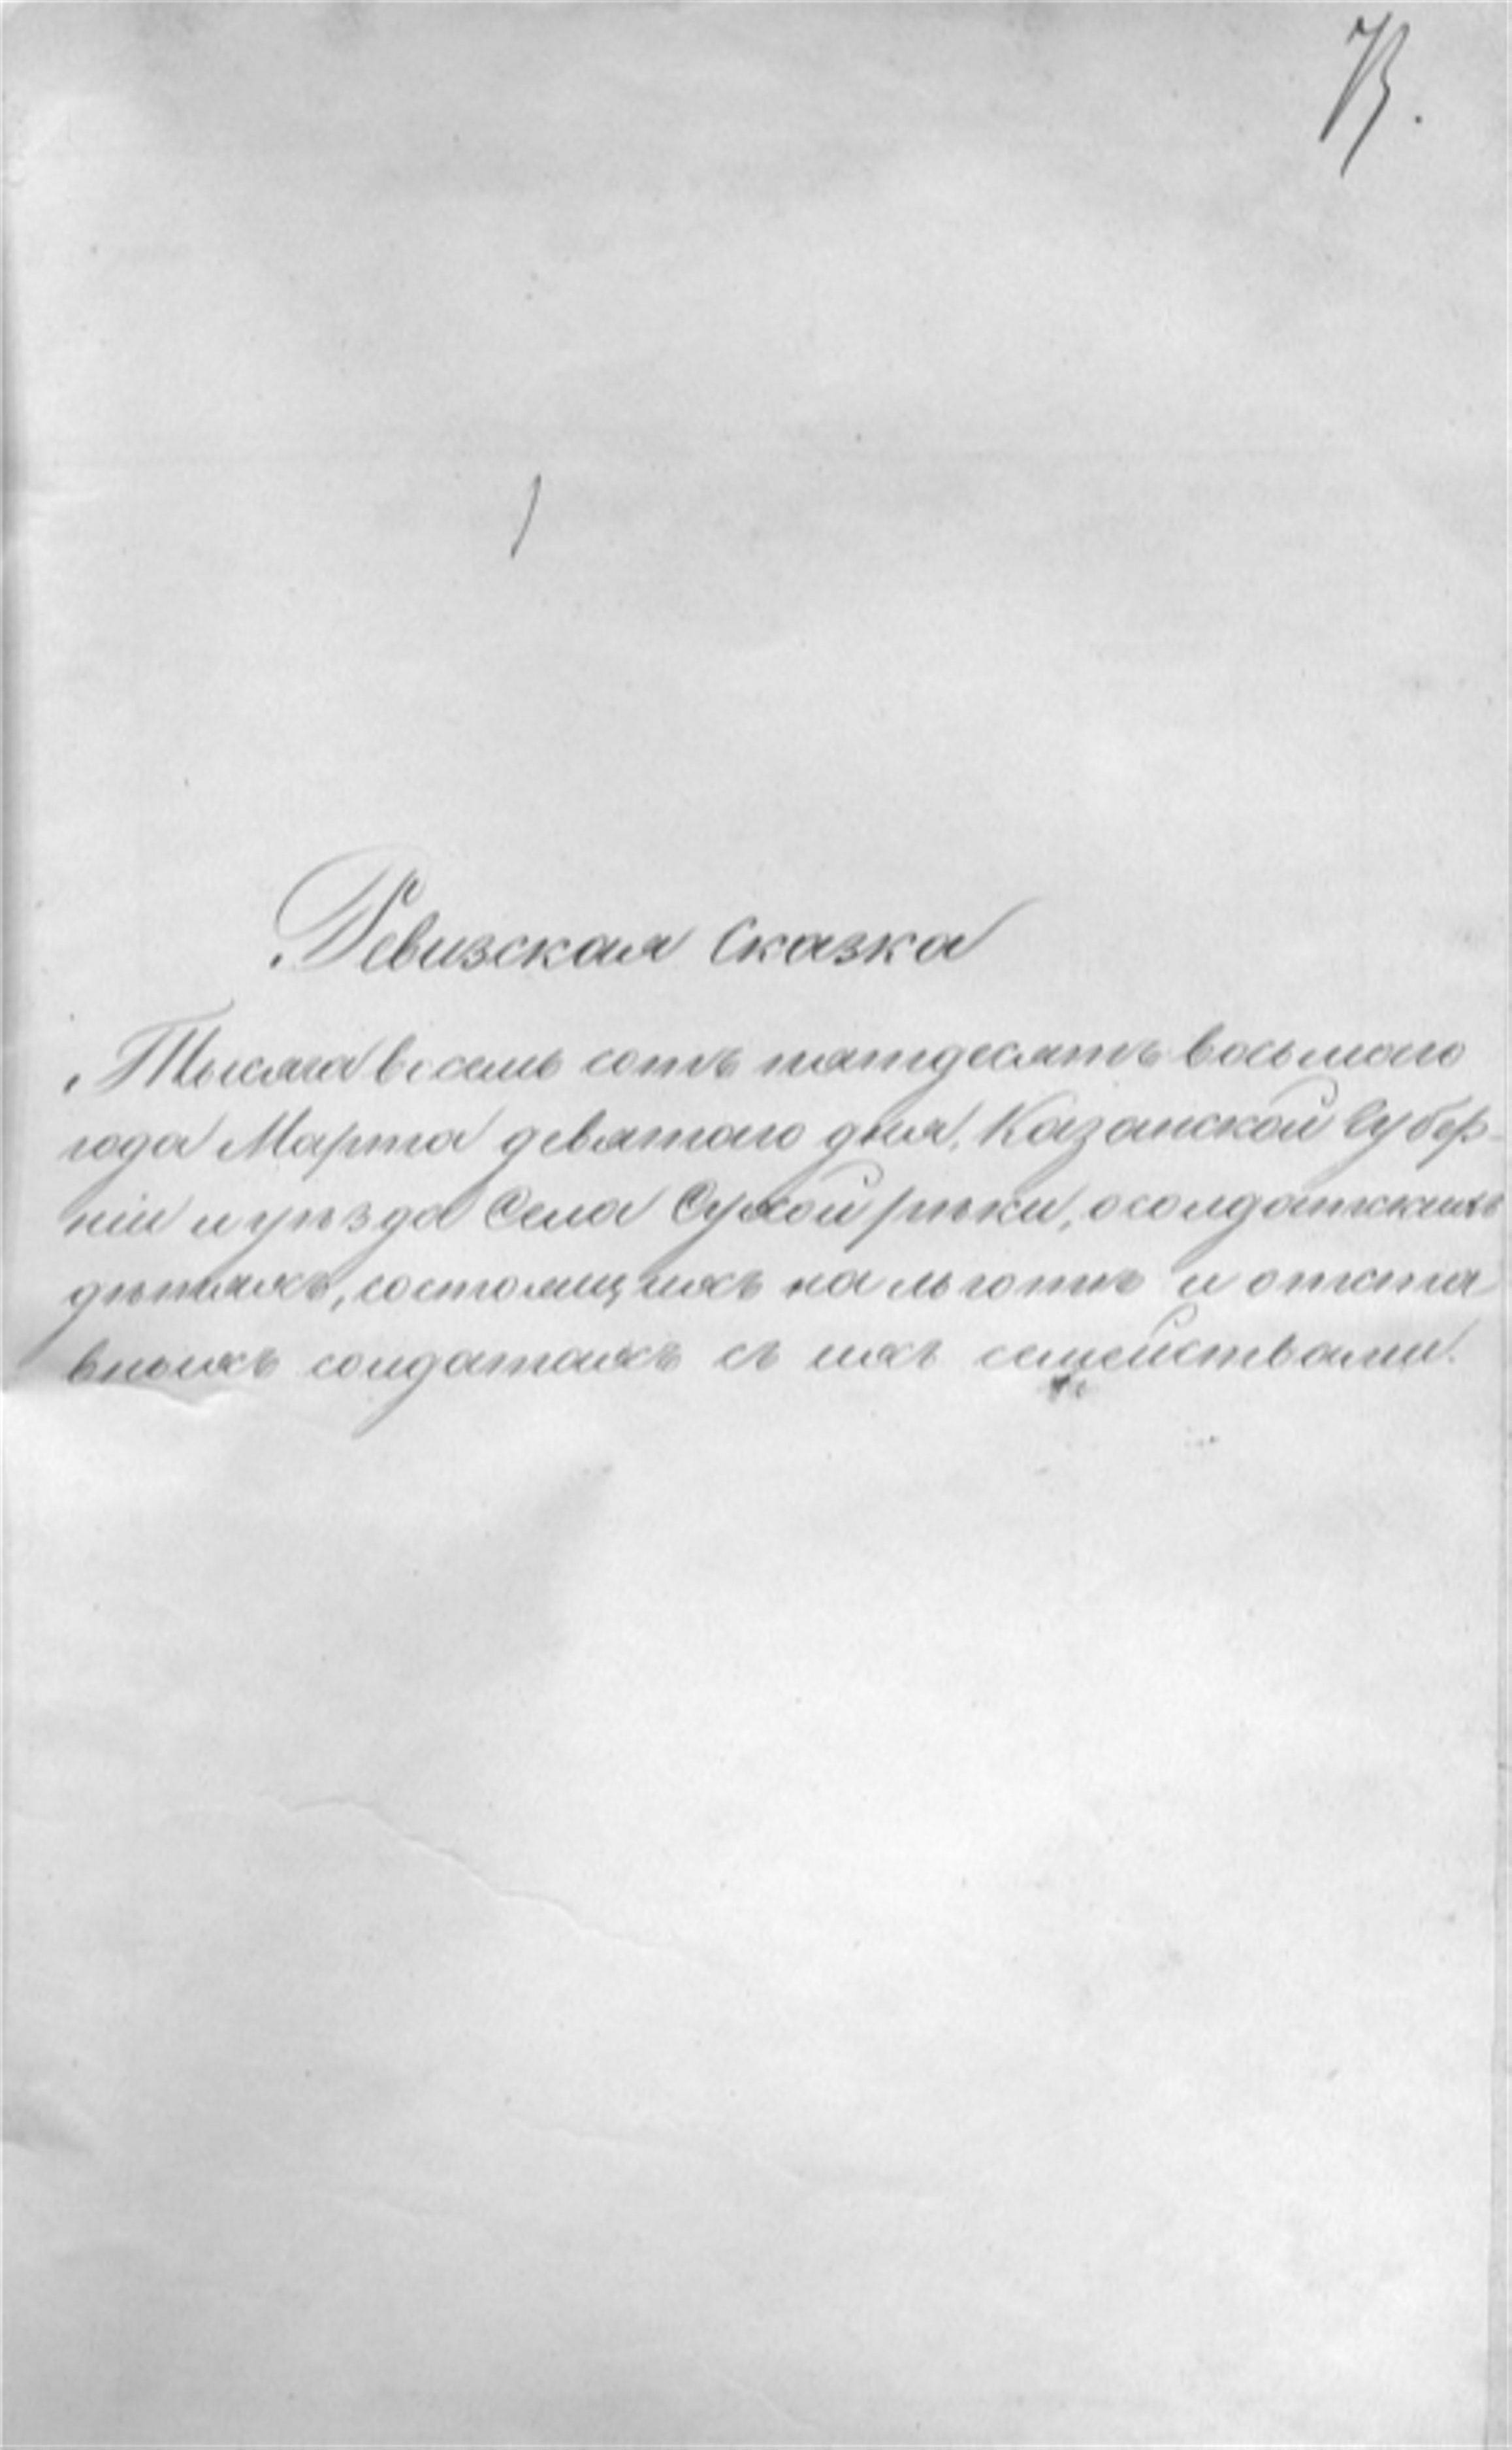 73.
Ревизская Сказка
Тысяча восемь сотъ пятдесятъ восьмаго
года Марта девятаго дня, Казанской Губер-
ніи и уѣзда Села Сухой рѣки, о солдатскихъ
дѣтяхъ, состоящихъ на льготѣ и отста
вныхъ солдатахъ съ ихъ семействами.